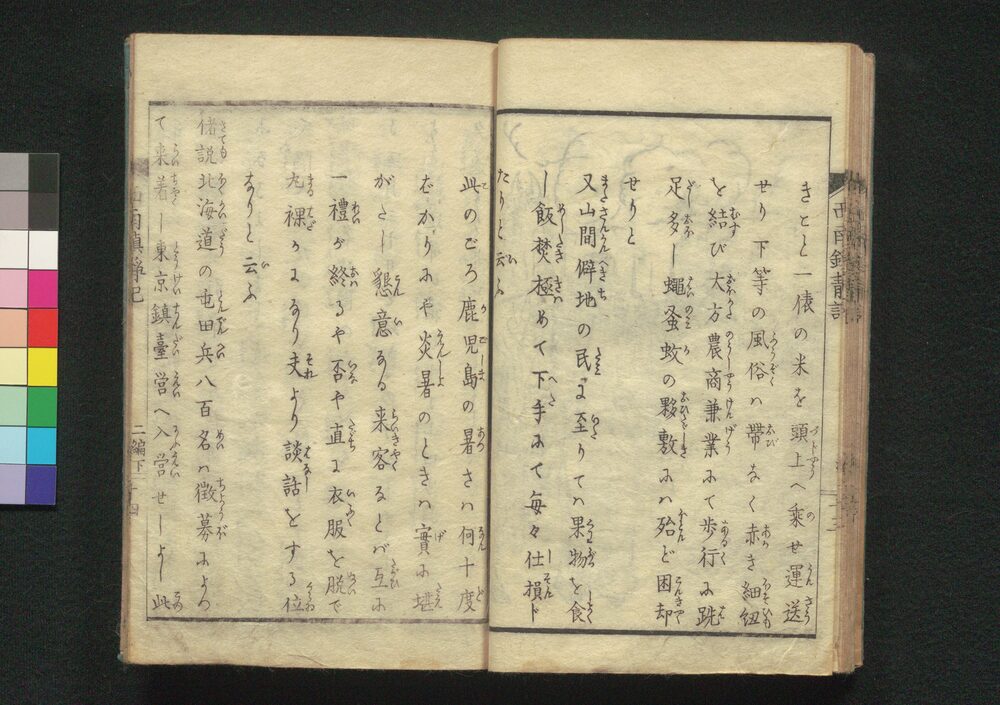 きとと一俵の米を頭上へ乗せ運送
せり下等の風俗ハ帯なく赤き細紐
を結び大方農商兼業にて歩行に跣
足多し蠅蚤蚊の夥敷にハ殆ど困却
せりと
又山間僻地の民に至りてハ果物を食
し飯焚極めて下手にて毎々仕損ト
たりと云ふ
此のごろ鹿児島の暑さハ何十度
ばかりにや炎暑のときハ實に堪
がたけれバ懇意なる来客あるとバ互に
一禮が終るや否や直に衣服を脱で
丸裸かになり夫より談話をする位
なりと云ふ
偖説北海道の屯田兵八百名ハ徴募によつ
て来着し東京鎮臺営へ入営せしよし此
二編下 十四